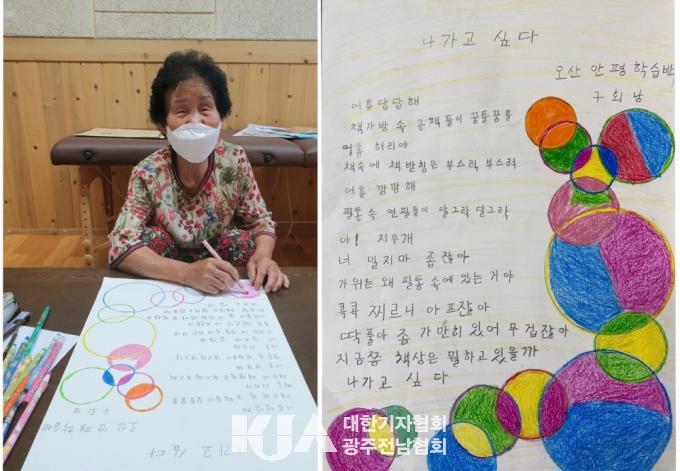 나가고 싶다
오산 안평 학습반
구희남
어휴 답답해
책가방 속 공책들이 꿈틀꿈틀
어휴 허리야
책속에 책받침은 부스럭 부스럭
어휴 깜깜해
필통 속 연필들이 달그락 달그락
야! 지우개
너 밀지마 좁잖아
가위는 왜 필통 속에 있는 거야
콕콕 찌르니 아프잖아
딱풀아 좀 가만히 있어 무겁잖아
지금쯤 책상은 뭘하고 있을까
나가고 싶다
KJA 대한기자협회
광주전남협회